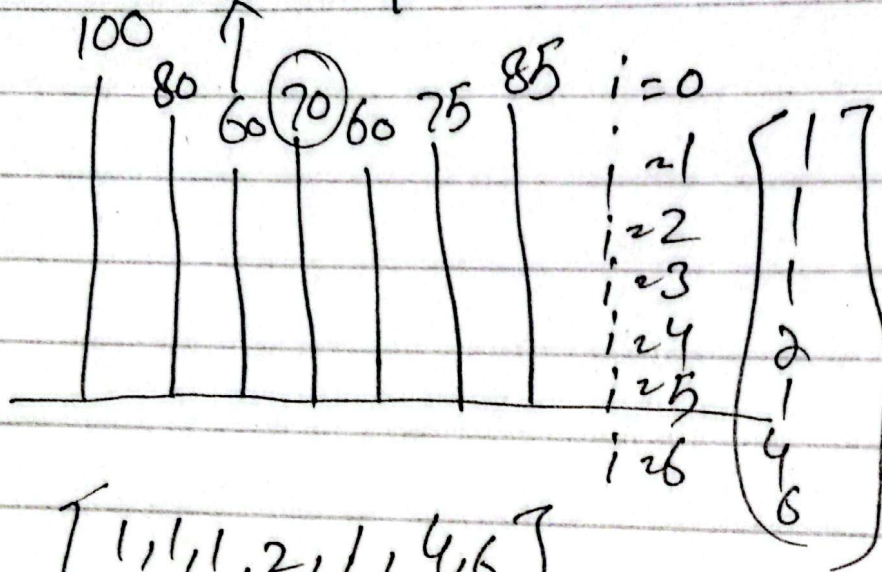 100 80 60 70 60 75 85
i=0
i=1
i=2
i=3
i=4
i=5
i=6
1
1
1
2
1
4
6
[1,1,1,2,1,4,6]